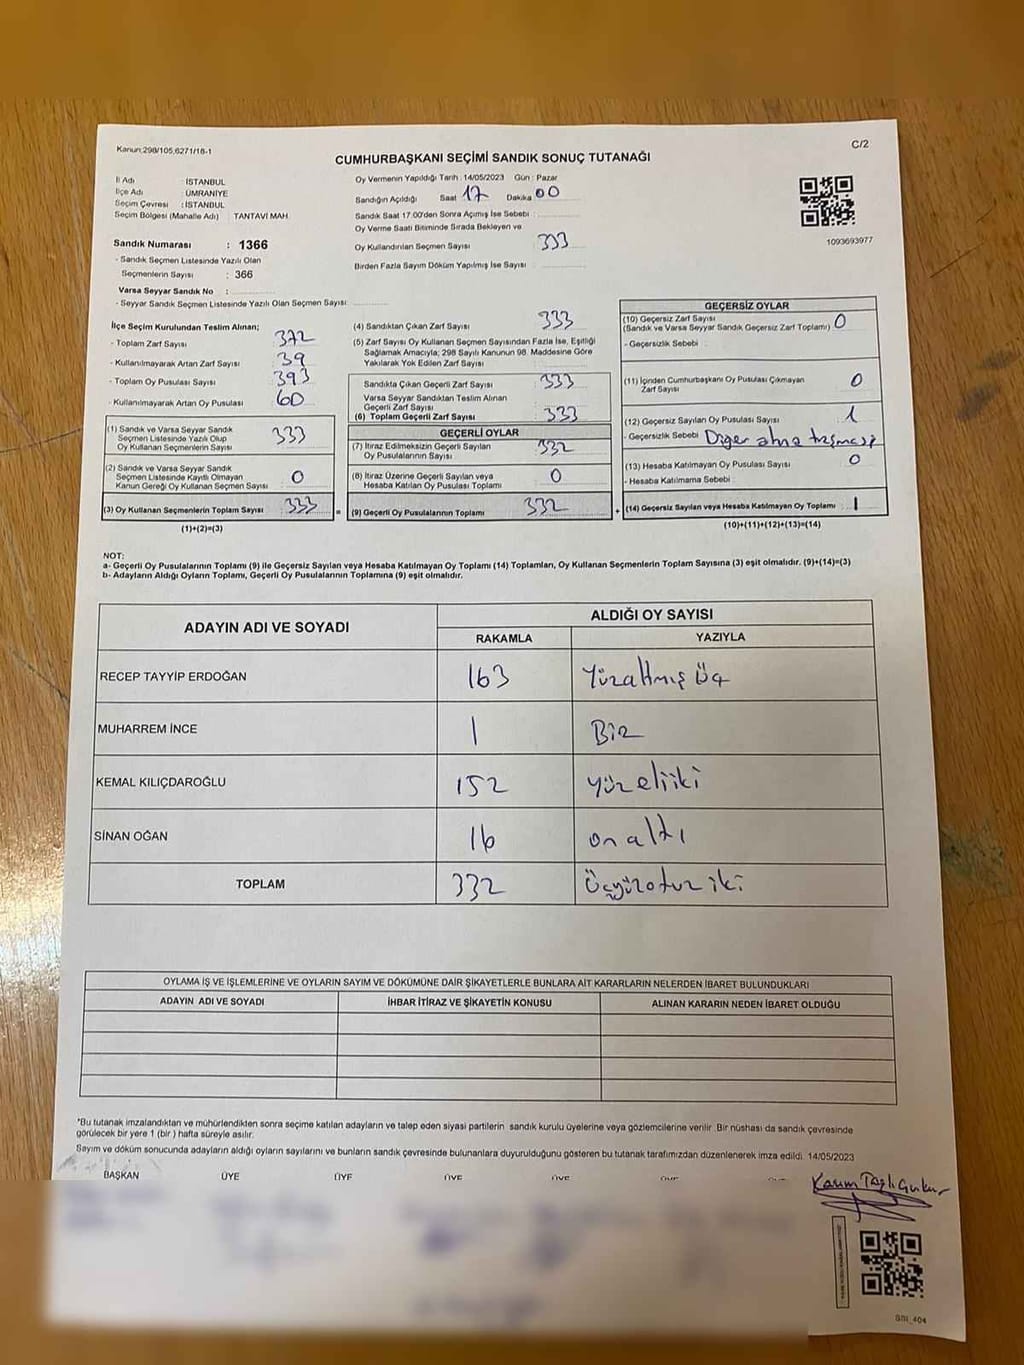 Kanun;298/105,6271/16-1
C/2
CUMHURBAŞKANI SEÇİMİ SANDIK SONUÇ TUTANAĞI
İl Adı : İSTANBUL
İlçe Adı : ÜMRANİYE
Seçim Çevresi : İSTANBUL
Seçim Bölgesi (Mahalle Adı) TANTAVİ MAH.
Sandık Numarası : 1366
- Sandık Seçmen Listesinde Yazılı Olan
Seçmenlerin Sayısı : 366
Varsa Seyyar Sandık No :
- Seyyar Sandık Seçmen Listesinde Yazılı Olan Seçmen Sayısı:
Oy Vermenin Yapıldığı Tarih : 14/05/2023 Gün : Pazar
Sandığın Açıldığı Saat 17 Dakika 00
Sandık Saat 17.00'den Sonra Açımış İse Sebebi :
Oy Verme Saati Bitiminde Sırada Bekleyen ve
Oy Kullandırılan Seçmen Sayısı 333
Birden Fazla Sayım Döküm Yapılmış İse Sayısı :
1093693977
İlçe Seçim Kurulundan Teslim Alınan;
- Toplam Zarf Sayısı : 372
- Kullanılmayarak Artan Zarf Sayısı : 39
- Toplam Oy Pusulası Sayısı : 393
- Kullanılmayarak Artan Oy Pusulası : 60
(1) Sandık ve Varsa Seyyar Sandık
Seçmen Listesinde Yazılı Olup
Oy Kullanan Seçmenlerin Sayısı 333
(2) Sandık ve Varsa Seyyar Sandık
Seçmen Listesinde Kayıtlı Olmayan
Kanun Gereği Oy Kullanan Seçmen Sayısı 0
(3) Oy Kullanan Seçmenlerin Toplam Sayısı 333
(1)+(2)=(3)
(4) Sandıktan Çıkan Zarf Sayısı 333
(5) Zarf Sayısı Oy Kullanan Seçmen Sayısından Fazla İse, Eşitliği
Sağlamak Amacıyla; 298 Sayılı Kanunun 98. Maddesine Göre
Yakılarak Yok Edilen Zarf Sayısı
Sandıkta Çıkan Geçerli Zarf Sayısı 333
Varsa Seyyar Sandıktan Teslim Alınan
Geçerli Zarf Sayısı
(6) Toplam Geçerli Zarf Sayısı 333
GEÇERLİ OYLAR
(7) İtiraz Edilmeksizin Geçerli Sayılan
Oy Pusulalarının Sayısı 332
(8) İtiraz Üzerine Geçerli Sayılan veya
Hesaba Katılan Oy Pusulası Toplamı 0
= (9) Geçerli Oy Pusulalarının Toplamı 332
GEÇERSİZ OYLAR
(10) Geçersiz Zarf Sayısı
(Sandık ve Varsa Seyyar Sandık Geçersiz Zarf Toplamı) 0
- Geçersizlik Sebebi :
(11) İçinden Cumhurbaşkanı Oy Pusulası Çıkmayan
Zarf Sayısı 0
(12) Geçersiz Sayılan Oy Pusulası Sayısı 1
- Geçersizlik Sebebi Diğer alana taşması
(13) Hesaba Katılmayan Oy Pusulası Sayısı 0
- Hesaba Katılmama Sebebi
+ (14) Geçersiz Sayılan veya Hesaba Katılmayan Oy Toplamı : 1
(10)+(11)+(12)+(13)=(14)
NOT:
a- Geçerli Oy Pusulalarının Toplamı (9) ile Geçersiz Sayılan veya Hesaba Katılmayan Oy Toplamı (14) Toplamları, Oy Kullanan Seçmenlerin Toplam Sayısına (3) eşit olmalıdır. (9)+(14)=(3)
b- Adayların Aldığı Oyların Toplamı, Geçerli Oy Pusulalarının Toplamına (9) eşit olmalıdır.
ADAYIN ADI VE SOYADI
ALDIĞI OY SAYISI
RAKAMLA YAZIYLA
RECEP TAYYİP ERDOĞAN 163 Yüzaltmış üç
MUHARREM İNCE 1 Bir
KEMAL KILIÇDAROĞLU 152 yüzelliiki
SİNAN OĞAN 16 on altı
TOPLAM 332 Üçyüzotuz iki
OYLAMA İŞ VE İŞLEMLERİNE VE OYLARIN SAYIM VE DÖKÜMÜNE DAİR ŞİKAYETLERLE BUNLARA AİT KARARLARIN NELERDEN İBARET BULUNDUKLARI
ADAYIN ADI VE SOYADI İHBAR İTİRAZ VE ŞİKAYETİN KONUSU ALINAN KARARIN NEDEN İBARET OLDUĞU
*Bu tutanak imzalandıktan ve mühürlendikten sonra seçime katılan adayların ve talep eden siyasi partilerin sandık kurulu üyelerine veya gözlemcilerine verilir .Bir nüshası da sandık çevresinde
görülecek bir yere 1 (bir ) hafta süreyle asılır.
Sayım ve döküm sonucunda adayların aldığı oyların sayılarını ve bunların sandık çevresinde bulunanlara duyurulduğunu gösteren bu tutanak tarafımızdan düzenlenerek imza edildi. 14/05/2023
BAŞKAN ÜYE ÜYE ÜYE ÜYE